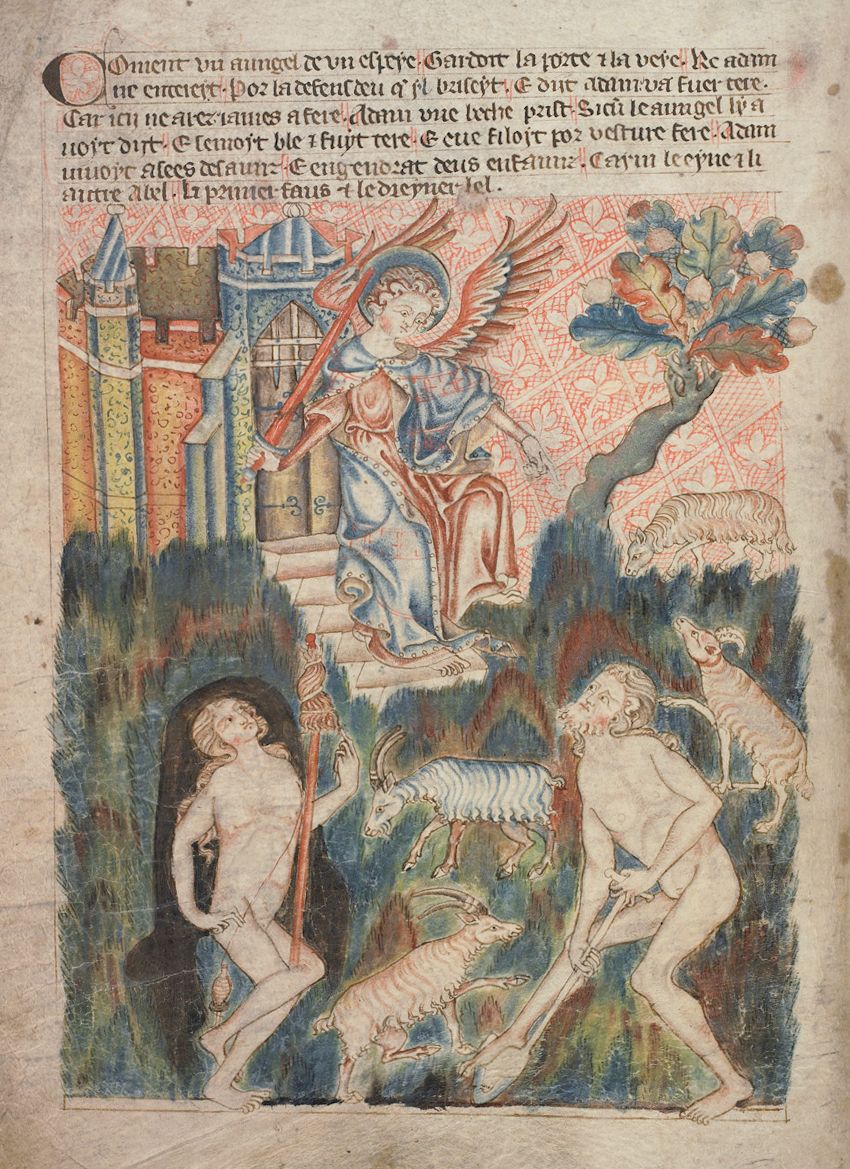 Coment un aungel de un espeye · Gardoit la porte ⁊ la veye · Ke adam
ne entereyt · Por la defens deu qe yl briseyt · E dyt adam va fuer tere ·
Car icy ne avez iames a fere · Adam une beche prist · Sicū le aungel ly a
voyt dyt · E semoyt ble ⁊ fuyt tere · E eve filoyt por vesture fere · Adam
vivoyt asees de
E engendrat deus enfaunz · Caym le eyne ⁊ li
autre Abel · Li primer faus ⁊ le dreyner lel ·